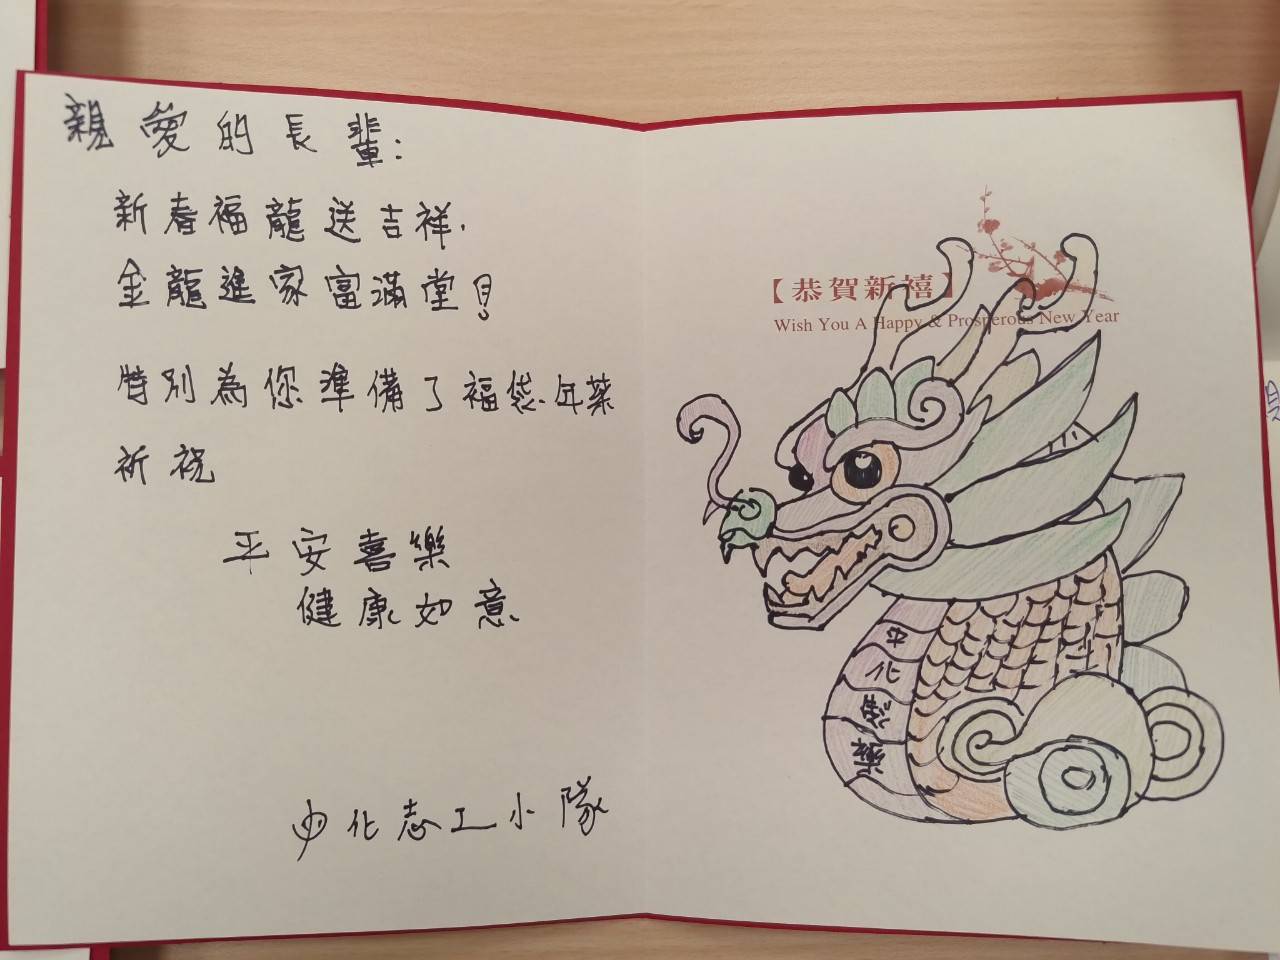 親愛的長輩：
新春福龍送吉祥，
金龍進家富滿堂！
特別為您準備了福袋、年菜
祈祝
平安喜樂
健康如意
中化志工小隊
【恭賀新禧】
Wish You A Happy & Prosperous New Year
中
化
製
藥